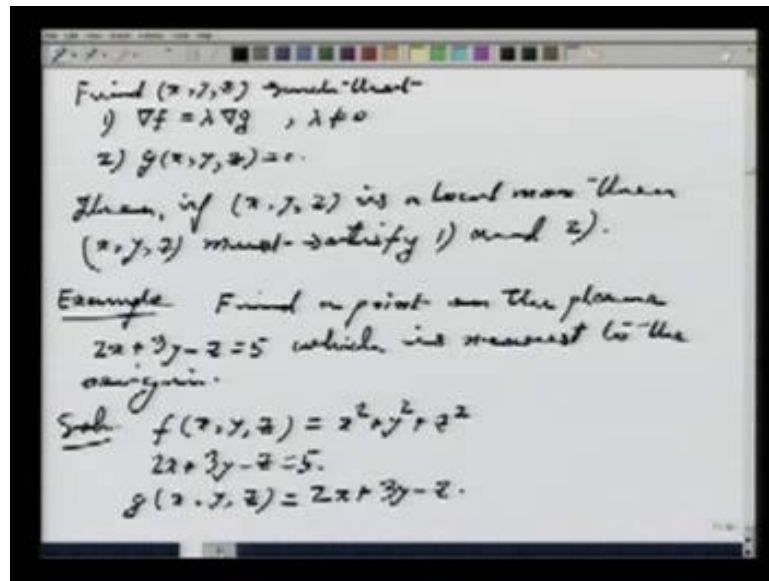 Find (x, y, z) such that
1) ∇f = λ∇g , λ ≠ 0
2) g(x, y, z) = c.
Then, if (x, y, z) is a local max then
(x, y, z) must satisfy 1) and 2).
Example Find a point on the plane
2x + 3y - z = 5 which is nearest to the
origin.
Sol. f(x, y, z) = x² + y² + z²
2x + 3y - z = 5.
g(x, y, z) = 2x + 3y - z.